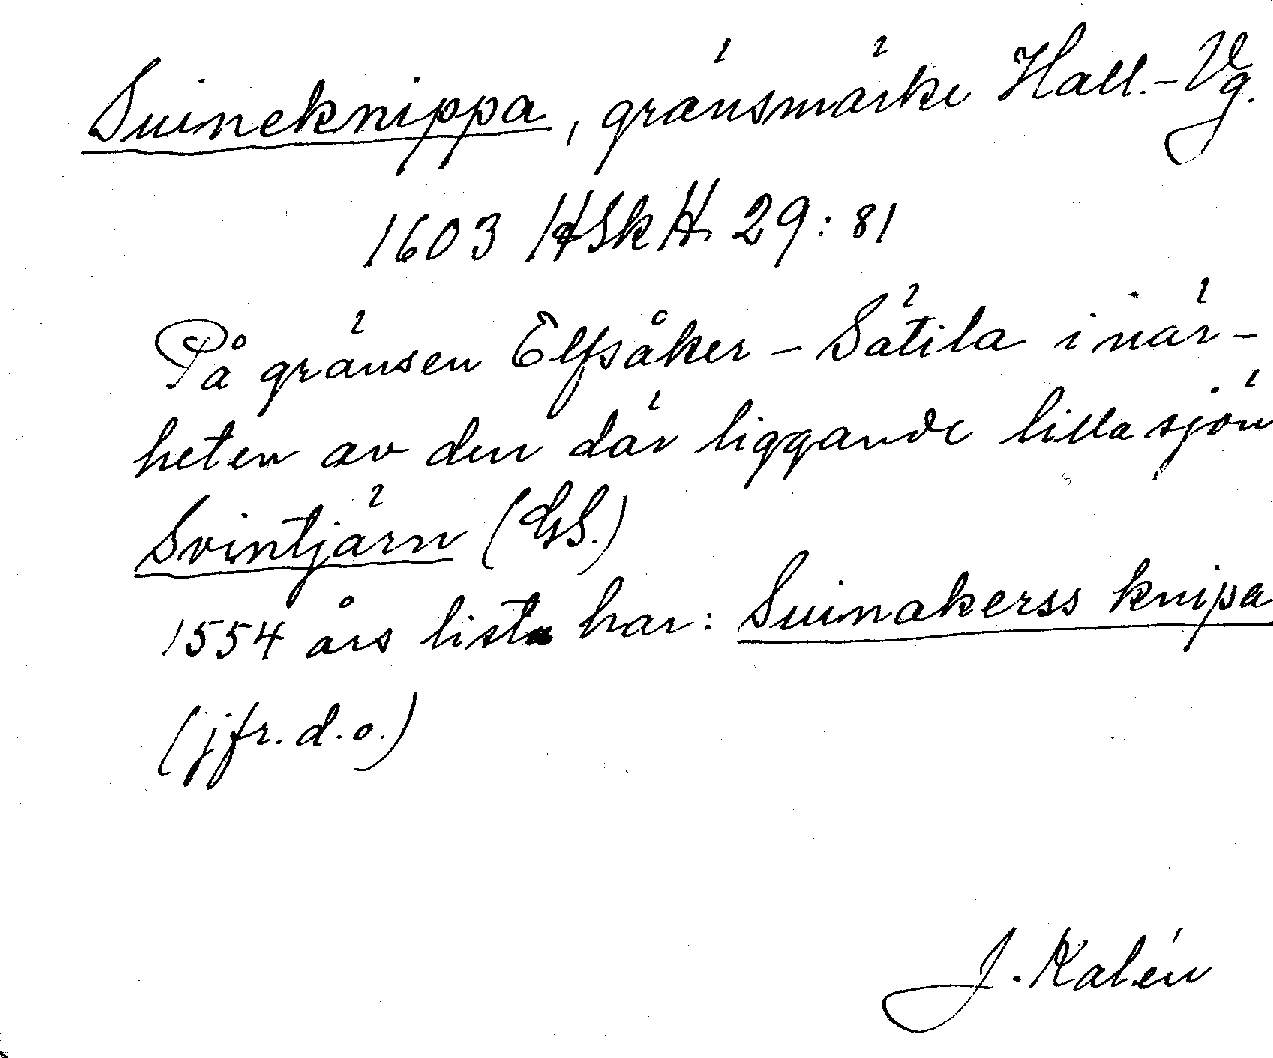 Suineknippa, gränsmärke Hall.-Vg.
1603 HSkH 29:81
På gränsen Elfsåker - Sätila i när-
heten av den där liggande lilla sjön
Svintjärn (GS.)
1554 års lista har: Suinakerss knipa
(jfr. d.o.)
J. Kalén